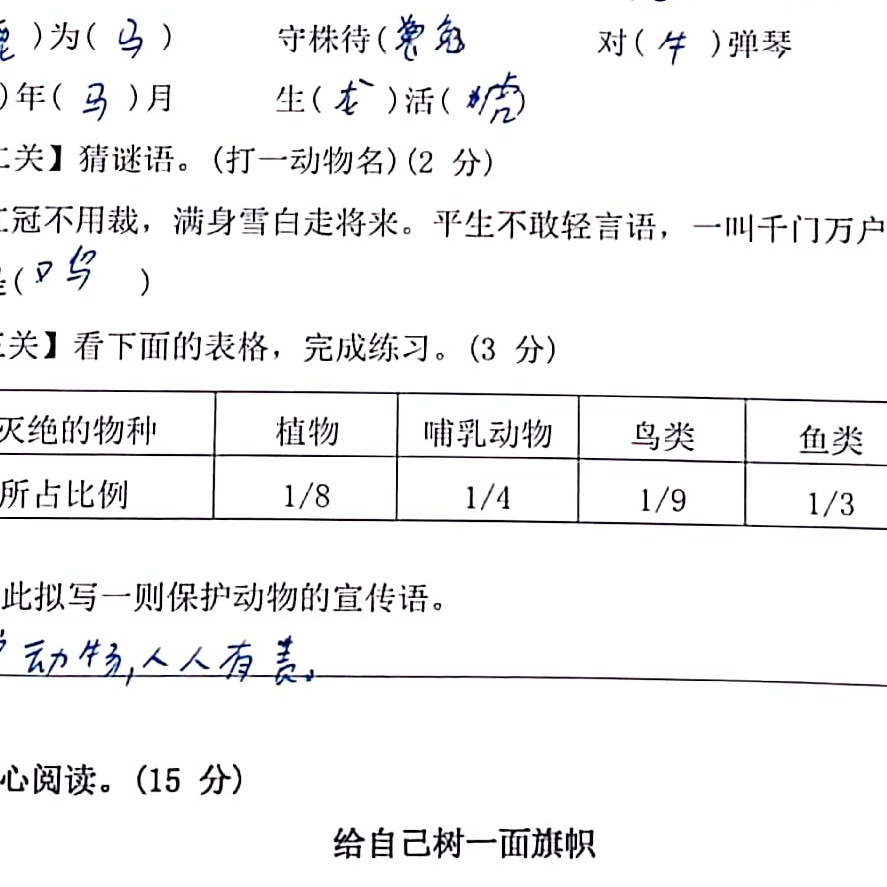 鹿)为(马) 守株待(兔 对(牛)弹琴
)年(马)月 生(龙)活(虎)
二关】猜谜语。(打一动物名)(2 分)
冠不用裁，满身雪白走将来。平生不敢轻言语，一叫千门万户
是(又鸟 )
三关】看下面的表格，完成练习。(3 分)
灭绝的物种 植物 哺乳动物 鸟类 鱼类
所占比例 1/8 1/4 1/9 1/3
此拟写一则保护动物的宣传语。
动物,人人有责。
心阅读。(15 分)
给自己树一面旗帜